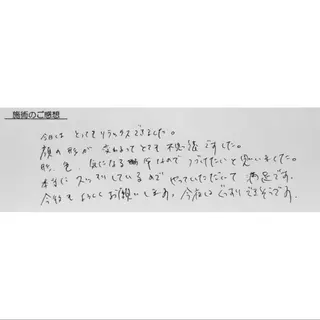 施術のご感想
今日は とってもリラックスできました。
顔の形が 変わってとても不思議でした。
肌、色、気になる箇所なので つづけたいと思いました。
本当に スッキリしているので やっていただいて 満足です。
今後も よろしくお願いします。今夜は ぐっすりできそうです。